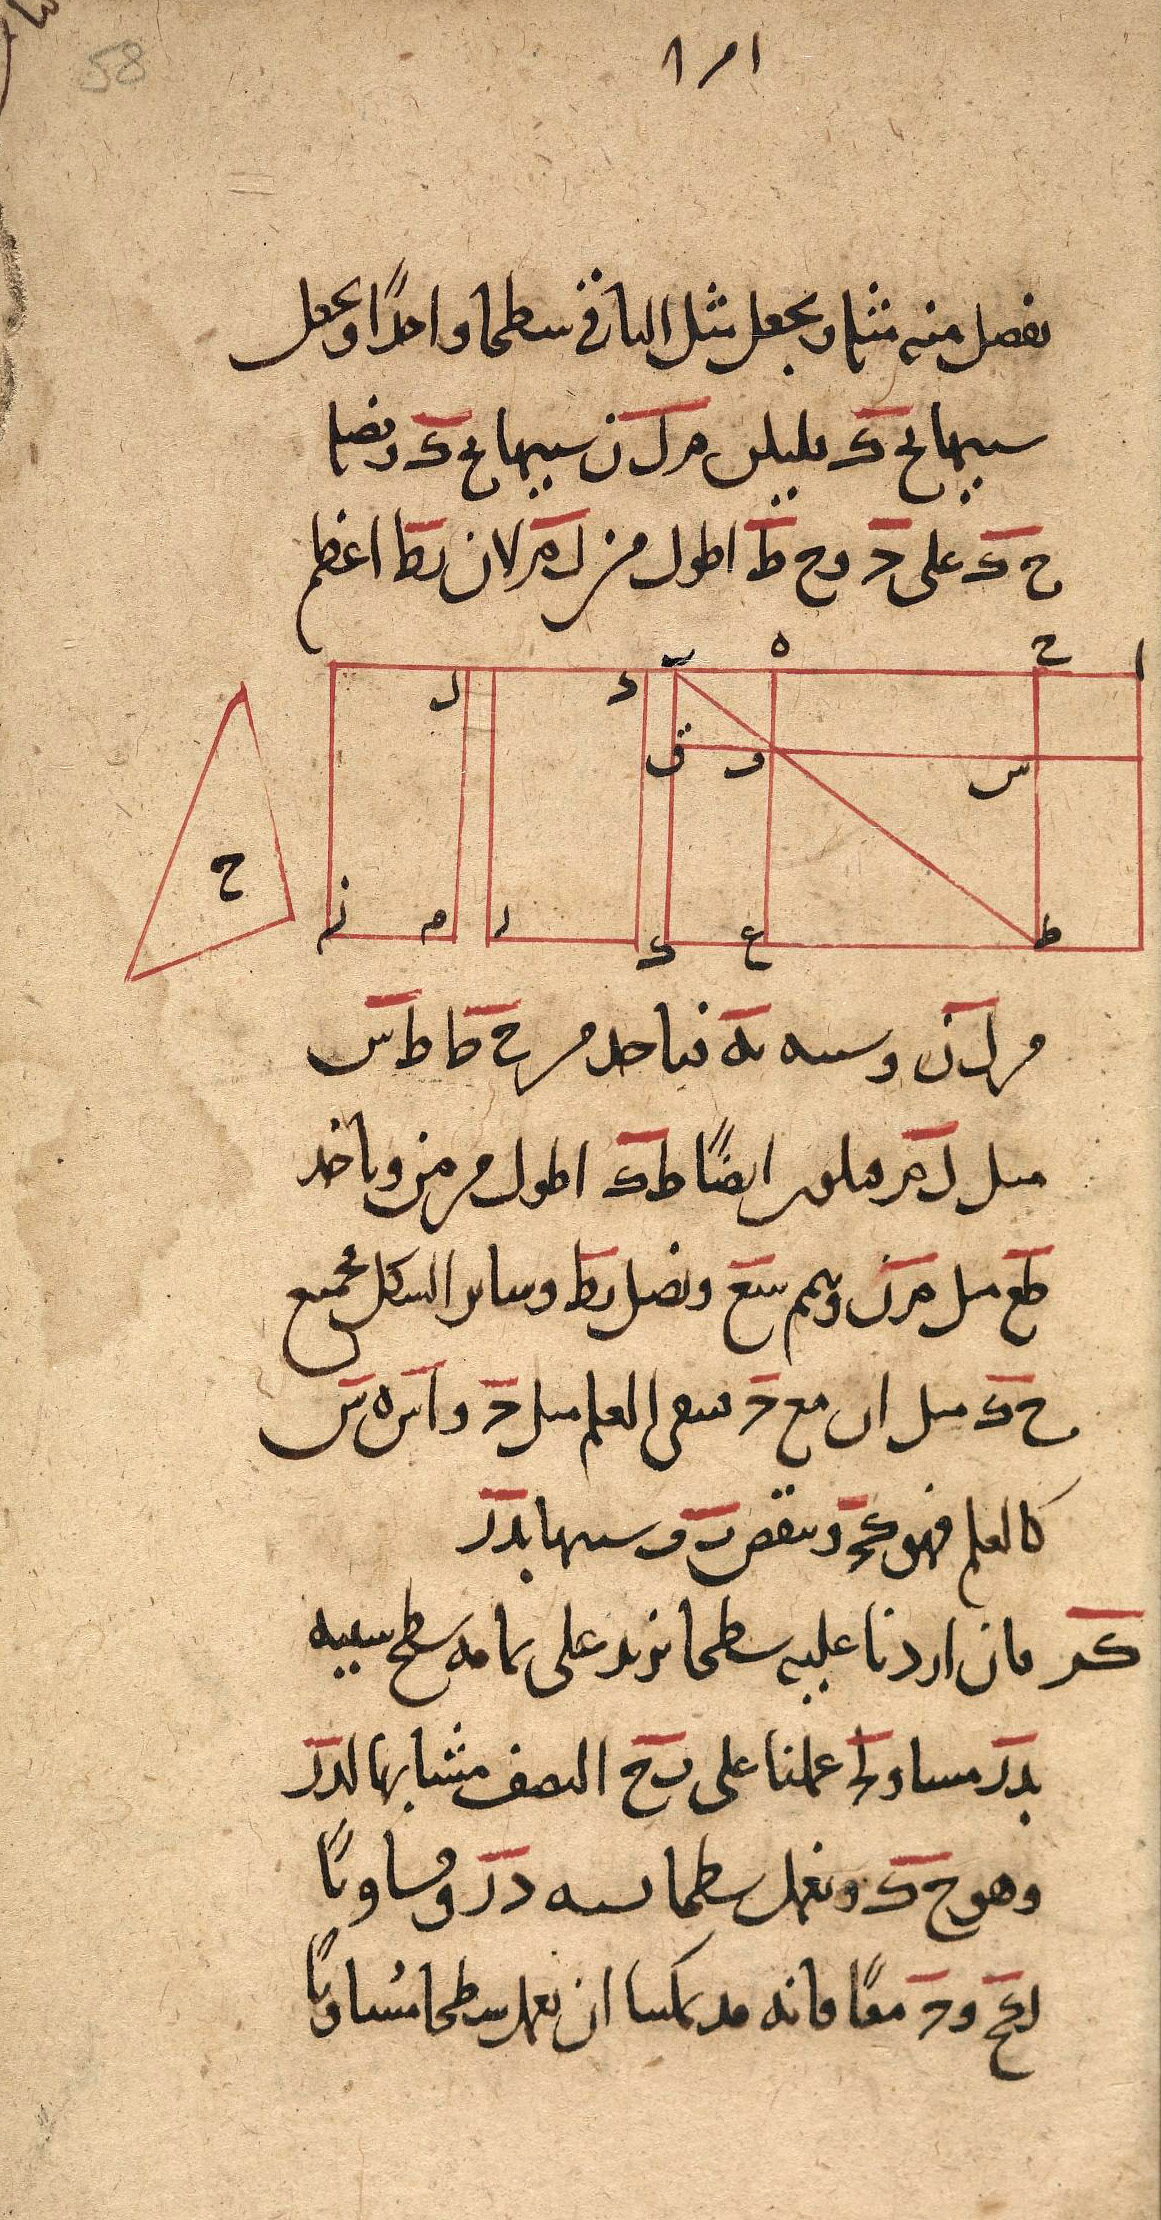 58
نفصل منه مثلها ونجعل مثل الباقي سطحا واحدًا ونجعل
شبيها بح ك فليكن م ل ن شبيها بح ك ونصلها
ح ك على ح وح ط اطول من ل م لان ب ط اعظم
ا ح ه ب ك ل
س و ق
ح
ط ع ك ر م ن
م ل ن وشبيه به فناخذ من ح ط ط س
مثل ل م فيكون ايضًا ط ك اطول من م ن وناخذ
ط ع مثل م ن ونتمم س ع ونصل ب ط وسائر الشكل فجميع
ح ك مثل ل ن مع ح فيبقى العلم مثل ح وا س ه س
كالعلم فهو كح وينقص ب و شبيها بدر
كر فان اردنا عليه سطحا يزيد على تمامه سطح شبيه
بدر مساو لح عملنا على ب ح النصف مشابها لدر
وهو ح ك ونعمل سطحا شبيه در ومساويًا
لح وح معًا فانه قد يمكننا ان نعمل سطحا مساويًا